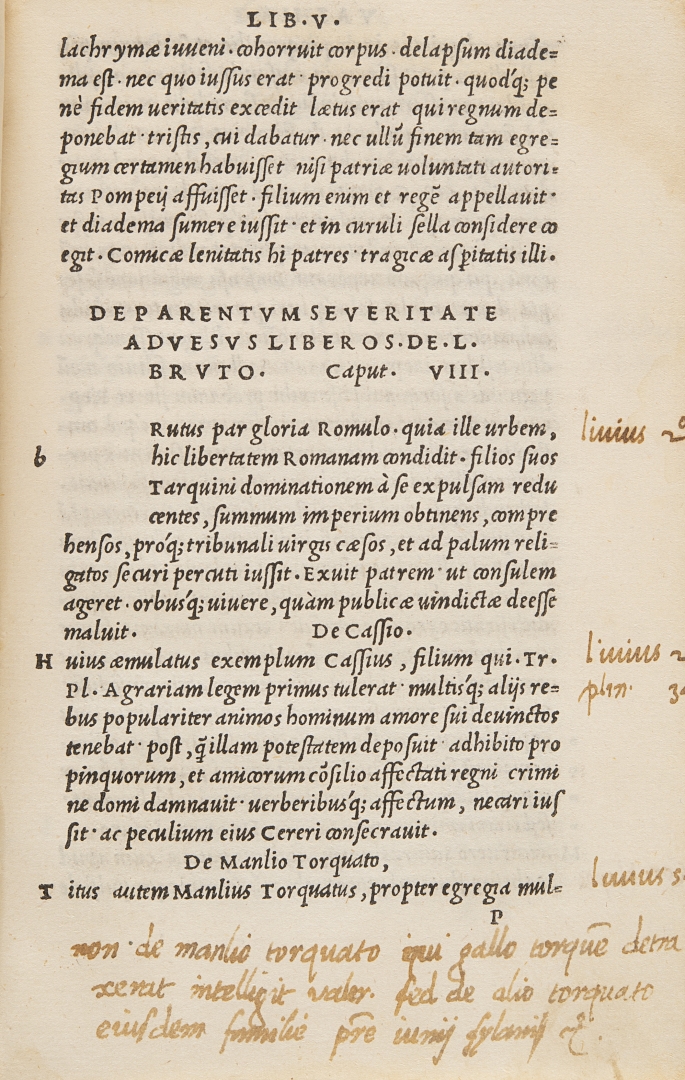 LIB.V.
lachrymæ iuueni. cohorruit corpus. delapsum diade=
ma est. nec quo iussus erat· progredi potuit. quodq́; pe
nè fidem ueritatis excedit lætus erat qui regnum de=
ponebat· tristis, cui dabatur. nec ullũ finem tam egre=
gium certamen habuisset nisi patriæ uoluntati autori=
tas Pompeij affuisset. filium enim et regẽ appellauit·
et diadema sumere iussit· et in curuli sella considere co
egit. Comicæ lenitatis hi patres· tragicæ asp̱itatis illi.
DE PARENTVM SEVERITATE
ADVESVS LIBEROS.DE.L.
BRVTO. Caput. VIII.
Rutus par gloria Romulo. quia ille urbem, liuius 2°
b hic libertatem Romanam condidit. filios suos
Tarquini dominationem à se expulsam redu
centes, summum imperium obtinens, compre
hensos, proq́; tribunali uirgis cæsos, et ad palum reli=
gatos securi percuti iussit. Exuit patrem· ut consulem
ageret. orbusq́; uiuere, quàm publicæ uindictæ deesse
maluit. De Cassio.
H uius æmulatus exemplum Cassius, filium qui. Tr. liuius 2
Pl. Agrariam legem primus tulerat· multisq́; alijs re= plin· 34
bus populariter animos hominum amore sui deuinctos
tenebat· post, q̃ illam potestatem deposuit· adhibito pro
pinquorum, et amicorum cõsilio affectati regni crimi
ne domi damnauit· uerberibusq́; affectum, necari ius
sit· ac peculium eius Cereri consecrauit.
De Manlio Torquato,
T itus autem Manlius Torquatus, propter egregia mul= liuius
P
non de manlio torquato qui gallo torquẽ detra
xerat intelligit valer. sed de alio torquato
eiusdem familie pr̃e iunij sylani